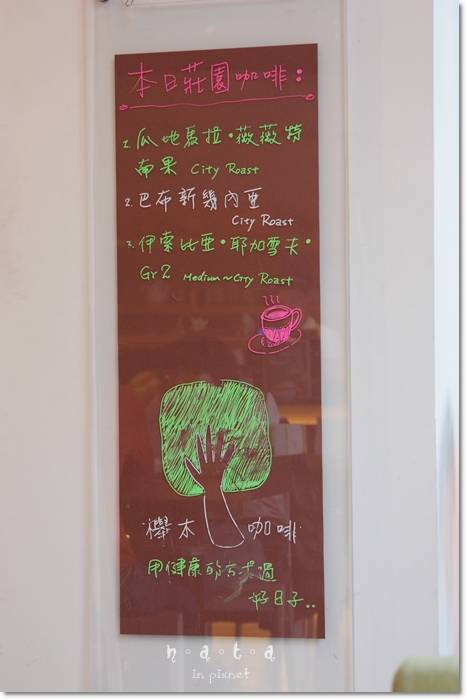 本日莊園咖啡：
1. 瓜地馬拉·薇薇特
南果 City Roast
2. 巴布新幾內亞
City Roast
3. 伊索比亞·耶加雪夫·
Gr2 Medium~City Roast
櫸木 咖啡
用健康的方式過
好日子..
n·a·t·a
in pixnet